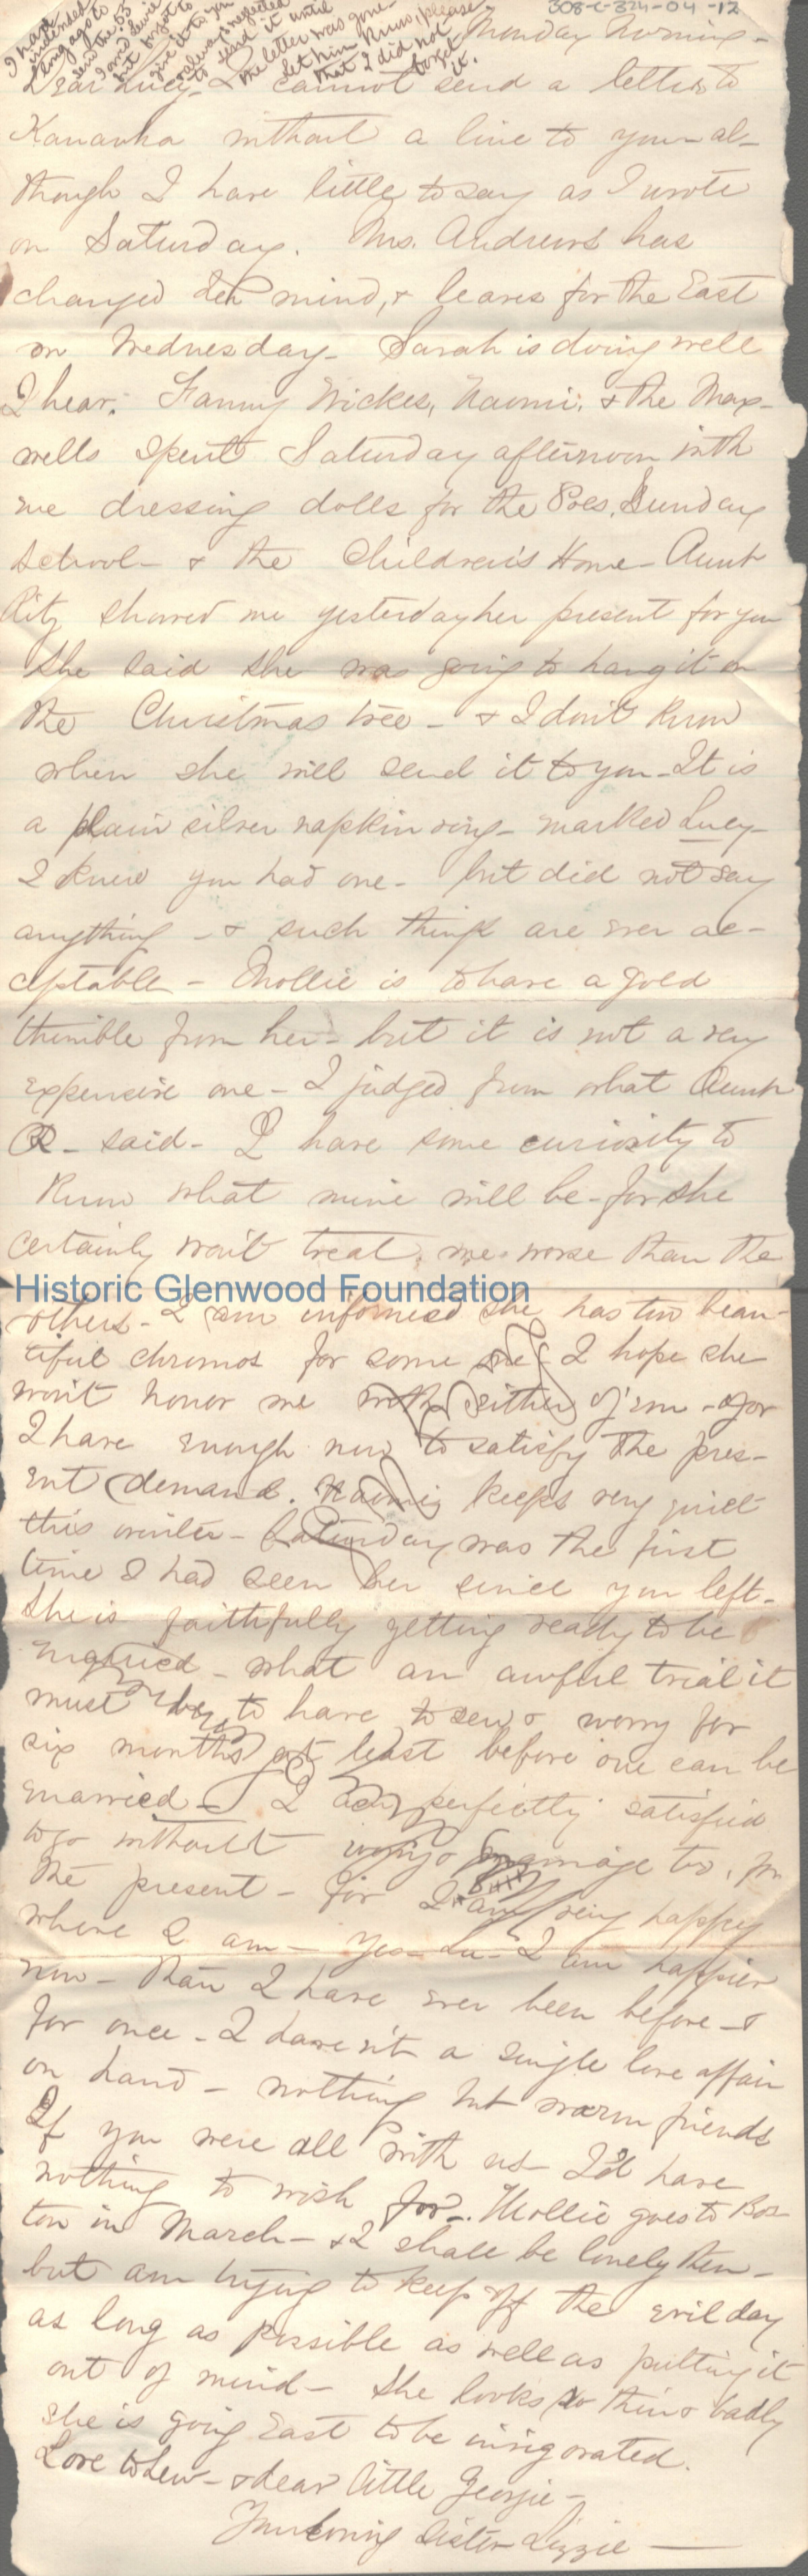 308-C-324-04-12
I have
intended
long ago to
send the .63
I owed Lewie
but forgot to
give it to you
& always neglected
to send it until
the letter was gone
let him know please
that I did not
forget
it.
Monday Morning -
Dear Lucy - I cannot send a letter to
Kanawha without a line to you - al-
though I have little to say as I wrote
on Saturday. Mrs. Andrews has
changed her mind, & leaves for the East
on Wednesday - Sarah is doing well
I hear. Fanny Wickes, Naomi, & the Max-
wells spent Saturday afternoon with
me dressing dolls for the Pres. Sunday
School - & the Children's Home - Aunt
Ritz showed me yesterday her present for you
She said she was going to hang it on
the Christmas tree - & I don't know
when she will send it to you - It is
a plain silver napkin ring - marked Lucy -
I knew you had one - but did not say
anything - & such things are ever ac-
ceptable - Mollie is to have a gold
thimble from her - but it is not a very
expensive one - I judged from what Aunt
R - said - I have some curiosity to
know what mine will be - for she
certainly won't treat me worse than the
Historic Glenwood Foundation
others - I am informed she has two beau-
tiful chromos for some one & I hope she
won't honor me with either of 'em - for
I have enough now to satisfy the pres-
ent demand. Naomi keeps very quiet
this winter - Saturday was the first
time I had seen her since you left -
She is faithfully getting ready to be
married - what an awful trial it
must be to have to sew & worry for
six months at least before one can be
married - I am perfectly satisfied
to go without marriage too, for
the present - for I am very happy
where I am - Yes - Lu - I am happier
now - than I have ever been before - &
for once - I haven't a single love affair
on hand - nothing but warm friends
If you were all with us - I'd have
nothing to wish for - . Mollie goes to Bos-
ton in March - & I shall be lonely then -
but am trying to keep off the evil day
as long as possible as well as putting it
out of mind - She looks so thin & badly
she is going East to be invigorated.
Love to Lew - & dear little Georgie -
Your loving sister Lizzie